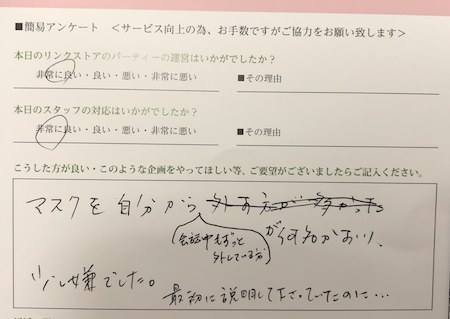 ■簡易アンケート　＜サービス向上の為、お手数ですがご協力をお願い致します＞
本日のリンクストアのパーティーの運営はいかがでしたか？
非常に良い・良い・悪い・非常に悪い　■その理由
本日のスタッフの対応はいかがでしたか？
非常に良い・良い・悪い・非常に悪い　■その理由
こうした方が良い・このような企画をやってほしい等、ご要望がございましたらご記入ください。
マスクを自分から外す方が多かった
(会話中もずっと
外している方)
が何名かおり、
少し嫌でした。
最初に説明して下さっていたのに…